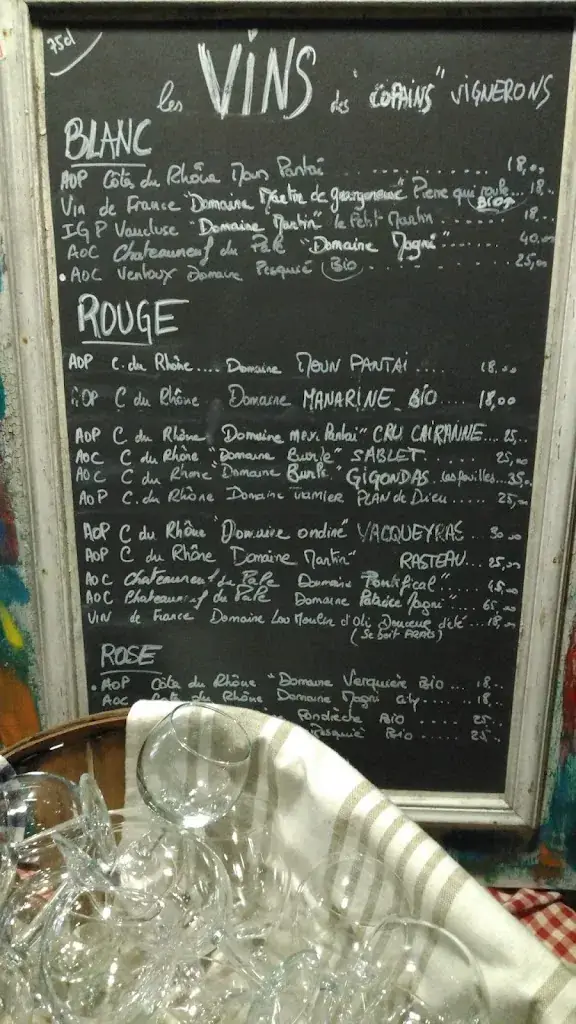 75cl
les VINS des "COPAINS" VIGNERONS
BLANC
AOP Côtes du Rhône Moun Pantai .............. 18,00
Vin de France "Domaine Martine de" Pierre qui roule... 18..
BIO
IGP Vaucluse "Domaine Martin" le Petit Martin ........ 18..
AOC Chateauneuf du Pape "Domaine Magni" ........ 40,00
• AOC Ventoux Domaine Pesquié BIO ........ 25,00
ROUGE
AOP C. du Rhône.... Domaine MOUN PANTAI ..... 18.00
AOP C du Rhône Domaine MANARINE BIO .... 18,00
AOP C du Rhône "Domaine Pantai" CRU CAIRANNE... 25..
AOC C du Rhône "Domaine" SABLET ...... 25,00
AOC C du Rhone "Domaine" GIGONDAS les pailles...35,00
AOP C. du Rhône Domaine PLAN de DIEU ..... 25,00
AOP C du Rhône "Domaine ondine" VACQUEYRAS ... 30.00
AOP C du Rhône Domaine Martin" RASTEAU.... 25,00
AOC Chateauneuf du Pape Domaine Pontifical" .... 45,00
AOC Chateauneuf du Pape Domaine Patrice Magni"... 65,00
VIN de France Domaine Lou Moulin d'Oli Douceur d'été ...18,00
(Se boit FRAIS)
ROSE
• AOP Côte du Rhône "Domaine Verquière Bio ... 18..
AOC Cote du Rhône Domaine Magni ... 18..
Fondrèche Bio ..... 25.
Pesquié Bio .... 25..